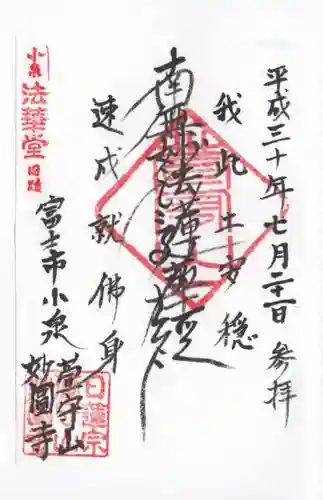 平成三十年七月二十一日 参拝
我此土安穏
南無妙法蓮華経
速成就佛身
小泉
法華堂
旧跡
富士市小泉
萱守山
妙圓寺
日蓮宗